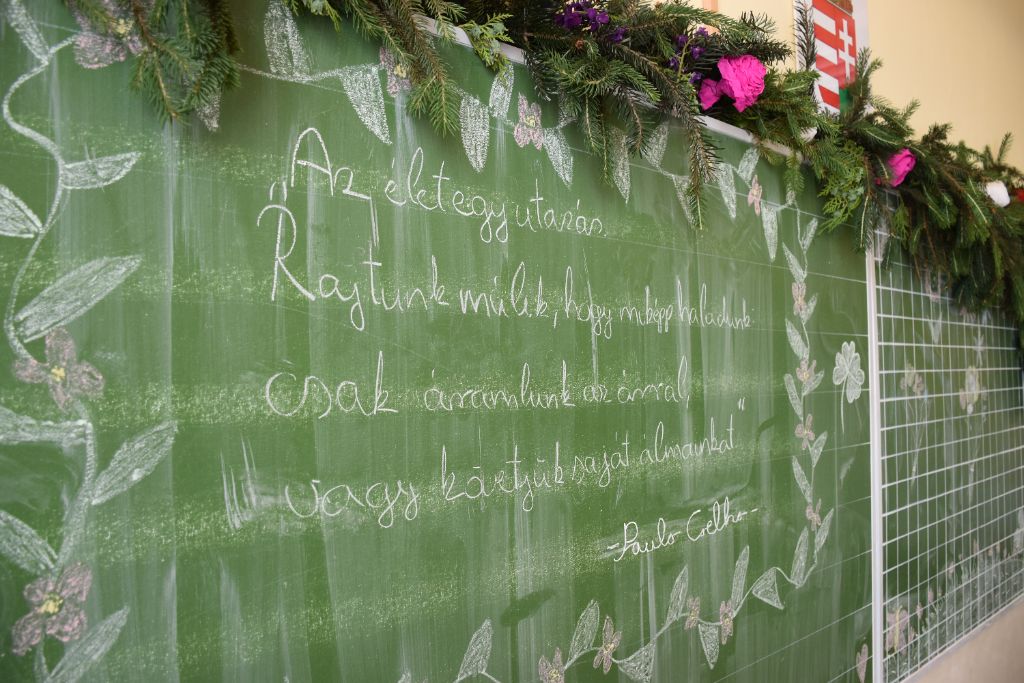 „Az élet egy utazás.
Rajtunk múlik, hogy miképp haladunk
csak áramlunk az árral,
vagy kövtjük saját álmainkat"
-Paulo Coelho-